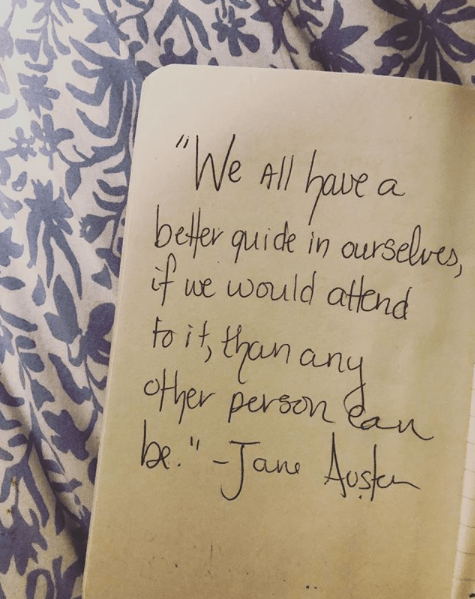 "We All have a
better guide in ourselves,
if we would attend
to it, than any
other person can
be." - Jane Austen